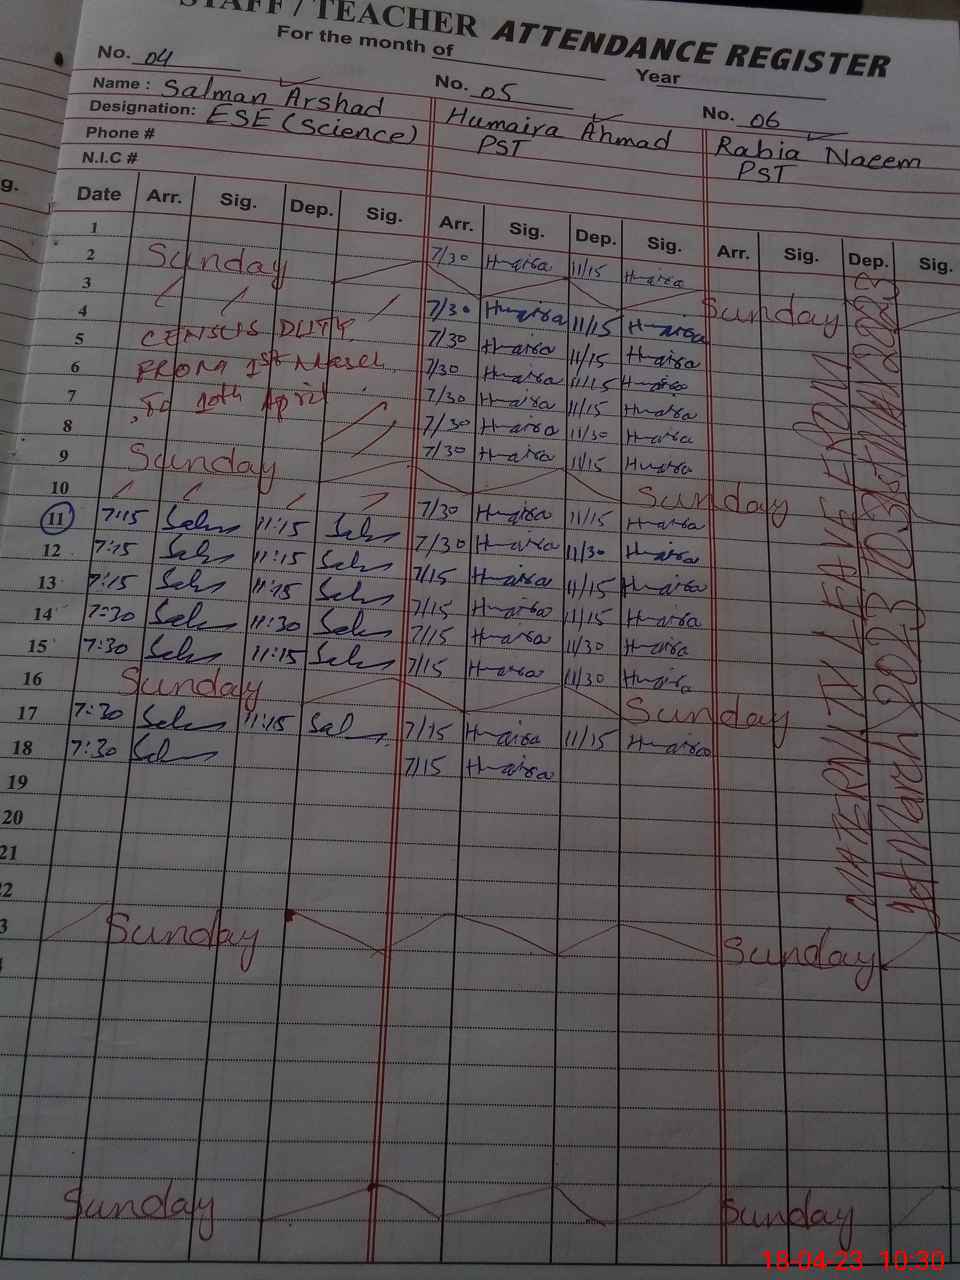 STAFF / TEACHER ATTENDANCE REGISTER
For the month of Year
No. 04 No. 05 No. 06
Name : Salman Arshad Humaira Ahmad Rabia Naeem
Designation: ESE (Science) PST PST
Phone #
N.I.C #
g.
Date Arr. Sig. Dep. Sig. Arr. Sig. Dep. Sig. Arr. Sig. Dep. Sig.
1 7/30 Humaira 11/15 Humaira
2 Sunday Sunday
3 7/30 Humaira 11/15 Humaira
4 CENSUS DUTY 7/30 Humaira 11/15 Humaira
5 FROM 1st March 7/30 Humaira 11/15 Humaira
6 To 10th April 7/30 Humaira 11/15 Humaira
7 7/30 Humaira 11/30 Humaira
8 7/30 Humaira 11/15 Humaira
9 Sunday Sunday
10 7/30 Humaira 11/15 Humaira
11 7:15 11:15 7/30 Humaira 11/30 Humaira
12 7:15 11:15 7/15 Humaira 11/15 Humaira
13 7:15 11:15 7/15 Humaira 11/15 Humaira
14 7:30 11:30 7/15 Humaira 11/30 Humaira
15 7:30 11:15 7/15 Humaira 11/30 Humaira
16 Sunday Sunday
17 7:30 11:15 7/15 Humaira 11/15 Humaira
18 7:30 7/15 Humaira
19
20
21
22
3 Sunday Sunday
Sunday Sunday
MATERNITY LEAVE FROM
1st March 2023 TO
18-04-23 10:30